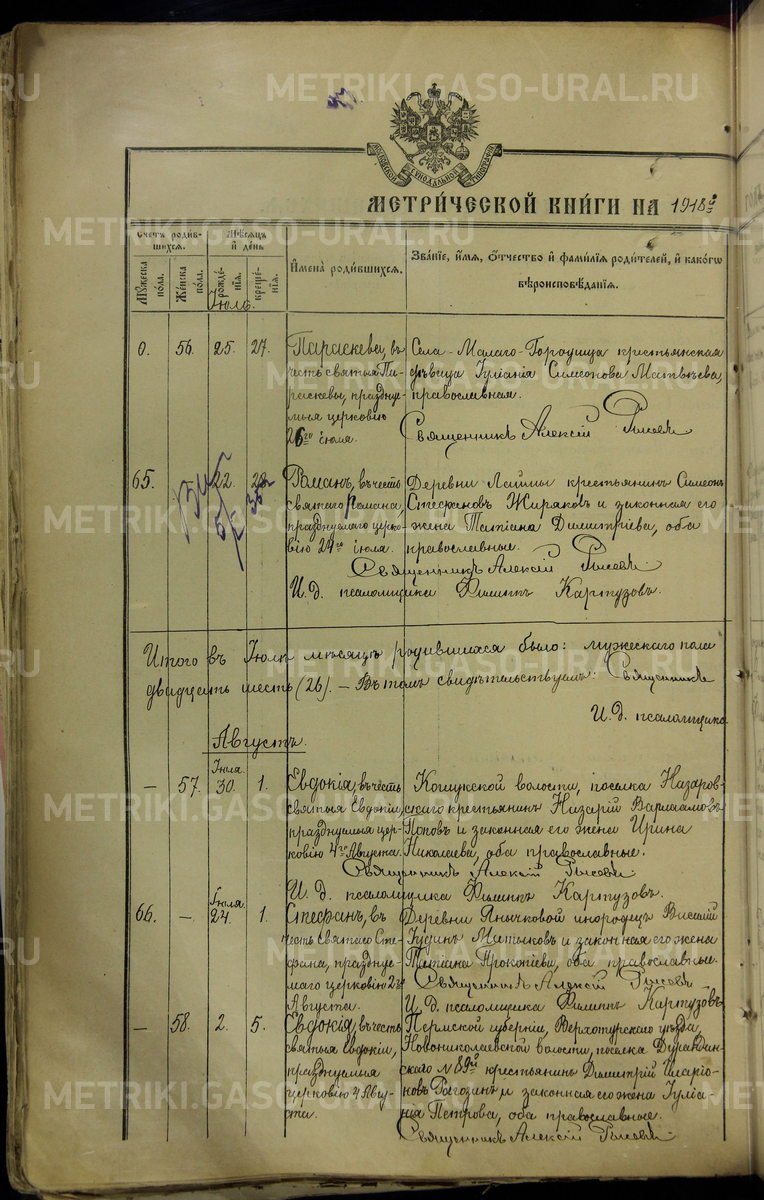 METRIKI.GASO-URAL.RU
МОСКОВСКОЙ СѴНОДАЛЬНОЙ ТИПОГРАФІИ
МЕТРИЧЕСКОЙ КНИГИ НА 1918 г.
Счетъ родившихся.
Мѣсяцъ и день
Имена родившихся.
Званіе, имя, отчество и фамилія родителей, и какого
вѣроисповѣданія.
Мужеска пола.
Женска пола.
рожденія.
крещенія.
Іюль.
0. 56. 25. 27.
Параскева, въ
честь святыя Па-
раскевы, праздну-
емыя церковію
26го іюля.
Села-Малаго-Городища крестьянская
дѣвица Іуліанія Симеонова Матвѣева,
православная.
Священникъ Алексій
65. 22. 28
Романъ, въ честь
святаго Романа,
празднуемаго церко-
вію 24го іюля.
Деревни Лаймы крестьянинъ Симеонъ
Стефановъ Жиряковъ и законная его
жена Татіана Димитріева, оба
православные.
Священникъ Алексій
И. д. псаломщика Филиппъ Картузовъ.
Итого въ Іюлѣ мѣсяцѣ родившихся было: мужескаго пола
двадцать шесть (26). — Въ томъ свидѣтельствуемъ: Священникъ
И. д. псаломщика
Августъ.
— 57. Іюля 30. 1.
Евдокія, въ честь
святыя Евдокіи,
празднуемыя цер-
ковію 4го Августа.
Кошукской волости, поселка Назаров-
скаго крестьянинъ Назарій Варлаамовъ
Поповъ и законная его жена Ирина
Николаева, оба православные.
Священникъ Алексій
И. д. псаломщика Филиппъ Картузовъ.
66. — Іюля 24. 1.
Стефанъ, въ
честь святаго Сте-
фана, праздну-
емаго церковію 2го
Августа.
Деревни Янычковой инородецъ Василій
Іудинъ Матыковъ и законная его жена
Татіана Прокопіева, оба православные.
Священникъ Алексій
И. д. псаломщика Филиппъ Картузовъ
— 58. 2. 5.
Евдокія, въ честь
святыя Евдокіи,
празднуемыя
церковію 4 Авгу-
ста.
Пермской губерніи, Верхотурскаго уѣзда,
Новониколаевской волости, поселка Дурандин-
скаго № 89й крестьянинъ Димитрій Иларіо-
новъ Рагозинъ и законная его жена Іуліа-
нія Петрова, оба православные.
Священникъ Алексій